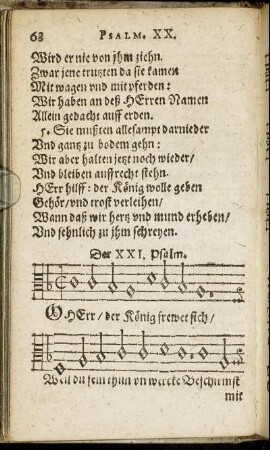 68 PSALM. XX.
Wird er nie von jhm ziehn.
Zwar jene trutzten da sie kamen
Mit wagen vnd mit pferden:
Wir haben an deß HErren Namen
Allein gedacht auff erden.
5. Sie mußten allesampt darnieder
Vnd gantz zu bodem gehn:
Wir aber halten jetzt noch wieder/
Vnd bleiben auffrecht stehn.
HErr hilff: der König wolle geben
Gehör/ vnd trost verleihen/
Wann daß wir hertz vnd mund erheben/
Vnd sehnlich zu jhm schreyen.
Der XXI. Psalm.
O HErr/ der König frewet sich/
Weil du sein thun vn wercke Beschirmst
mit